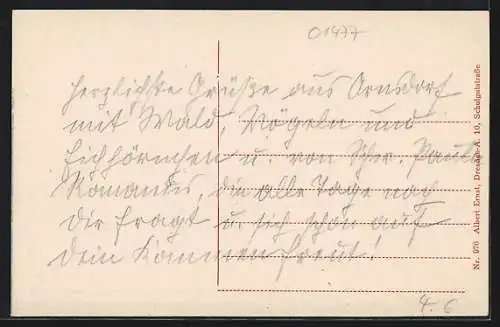 01477
herzlichste Grüße aus Arnsdorf
mit Wald, Vögeln und
Eichhörnchen u. von Schw. Paula
die alle Tage nach
Dir fragt u. sich schon auf
Dein Kommen freut!
4. 6
Nr. 970 Albert Ernst, Dresden-A. 10, Schulgutstraße